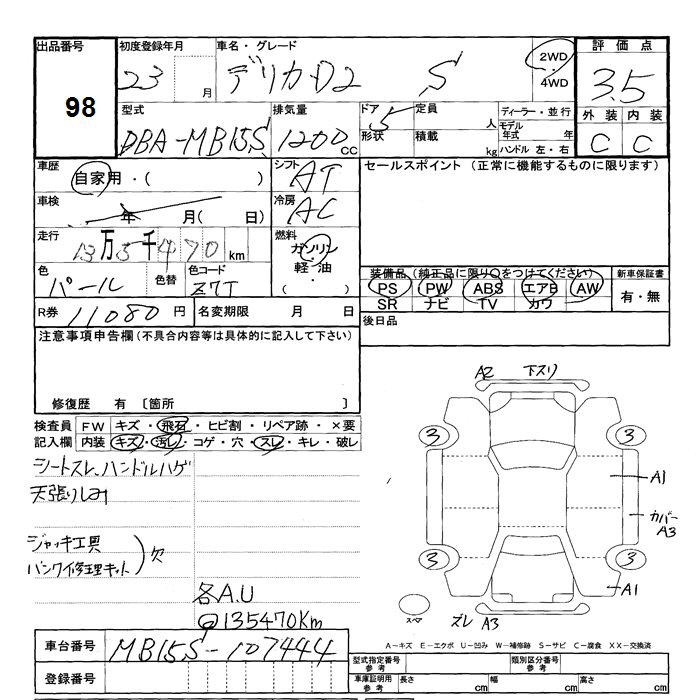 出品番号
98
初度登録年月
23 月
車名・グレード
デリカD2 S
2WD
・
4WD
評価点
3.5
外装 内装
C C
型式
DBA-MB15S
排気量
1200 cc
ドア 5
形状
定員 人
積載 kg
ディーラー・並行
モデル年式 年
ハンドル 左・右
車歴
自家用・( )
シフト
AT
車検
年 月( 日)
冷房
AC
走行
13万5千470km
燃料
ガソリン
軽・油
( ・ )
色
パール
色替
色コード
Z7T
R券 11080円
名変期限 月 日
セールスポイント (正常に機能するものに限ります)
装備品 (純正品に限り○をつけてください)
PS PW ABS エアB AW
SR ナビ TV カワ
新車保証書
有・無
後日品
注意事項申告欄(不具合内容等は具体的に記入して下さい)
修復歴 有 〔箇所 〕
検査員
記入欄
FW キズ・飛石・ヒビ割・リペア跡・×要
内装 キズ・汚レ・コゲ・穴・スレ・キレ・破レ
シートスレ、ハンドルハゲ
天張りしみ
ジャッキ工具
パンク修理キット 欠
各A.U
@135470Km
A2 下スリ
3 3
A1
カバー
A3
3 3
A1
スペア
ズレ A3
A-キズ E-エクボ U-凹み W-補修跡 S-サビ C-腐食 XX-交換済
車台番号
MB15S-107444
登録番号
型式指定番号
参考
類別区分番号
参考
車庫証明用
参考
長さ cm
幅 cm
高さ cm